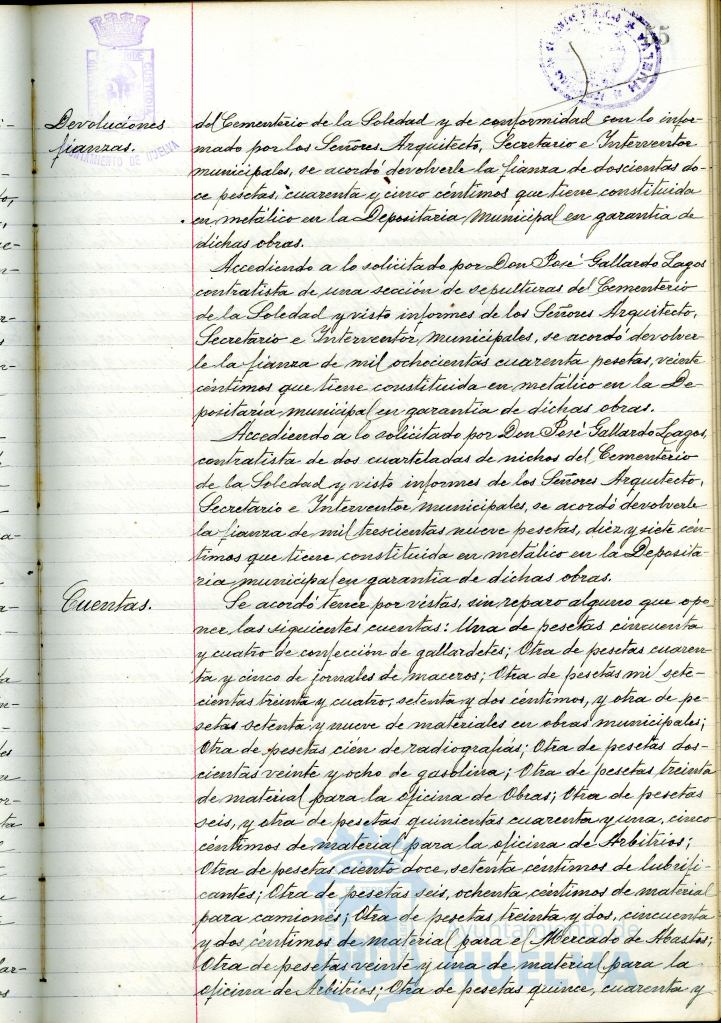 55
Devoluciones
fianzas.
AYUNTAMIENTO DE HUELVA
del Cementerio de la Soledad y de conformidad con lo infor-
mado por los Señores Arquitecto, Secretario e Interventor
municipales, se acordó devolverle la fianza de doscientas do-
ce pesetas, cuarenta y cinco céntimos que tiene constituida
en metálico en la Depositaria Municipal en garantia de
dichas obras.
Accediendo a lo solicitado por Don José Gallardo Lagos
contratista de una sección de sepulturas del Cementerio
de la Soledad y visto informes de los Señores Arquitecto,
Secretario e Interventor, municipales, se acordó devolver-
le la fianza de mil ochocientas cuarenta pesetas, veinte
céntimos que tiene constituida en metálico en la De-
positaría municipal en garantia de dichas obras.
Accediendo a lo solicitado por Don José Gallardo Lagos,
contratista de dos cuarteladas de nichos del Cementerio
de la Soledad y visto informes de los Señores Arquitecto,
Secretario e Interventor municipales, se acordó devolverle
la fianza de mil trescientas nueve pesetas, diez y siete cén-
timos que tiene constituida en metálico en la Deposita-
ria municipal en garantia de dichas obras.
Cuentas.
Se acordó tener por vistas, sin reparo alguno que opo-
ner las siguientes cuentas: Una de pesetas cincuenta
y cuatro de confección de gallardetes; Otra de pesetas cuaren-
ta y cinco de jornales de maceros; Otra de pesetas mil sete-
cientas treinta y cuatro, setenta y dos céntimos, y otra de pe-
setas setenta y nueve de materiales en obras municipales;
Otra de pesetas cien de radiografías; Otra de pesetas dos-
cientas veinte y ocho de gasolina; Otra de pesetas, treinta
de material para la oficina de Obras; Otra de pesetas
seis, y otra de pesetas quinientas cuarenta y una, cinco
céntimos de material para la oficina de Arbitrios;
Otra de pesetas ciento doce, setenta céntimos de lubrifi-
cantes; Otra de pesetas seis, ochenta céntimos de material
para camiones; Otra de pesetas treinta y dos, cincuenta
y dos céntimos de material para el Mercado de Abastos;
Otra de pesetas veinte y una de material para la
oficina de Arbitrios; Otra de pesetas quince, cuarenta y
Ayuntamiento de
HUELVA